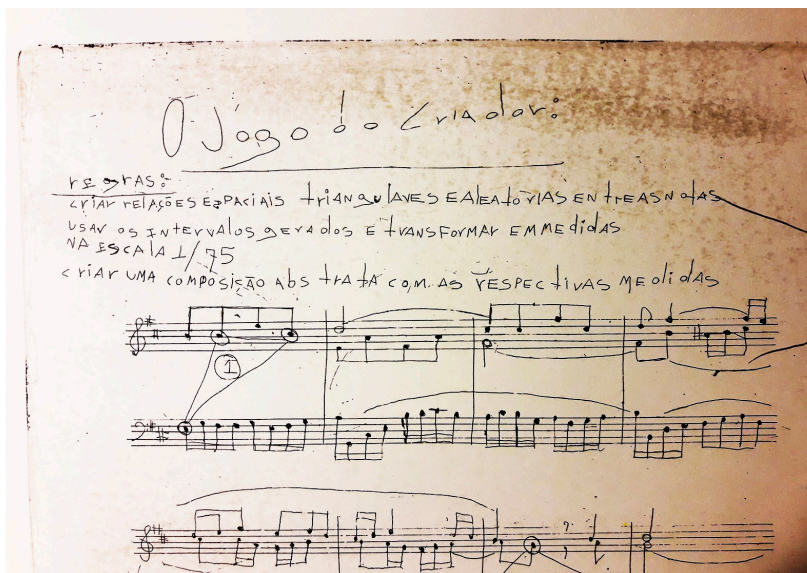 O Jogo do Criador:
regras:
criar relações espaciais triangulaves e aleatórias entre as notas
usar os intervalos gerados e transformar em medidas
na escala 1/75
criar uma composição abstrata com as respectivas medidas
1